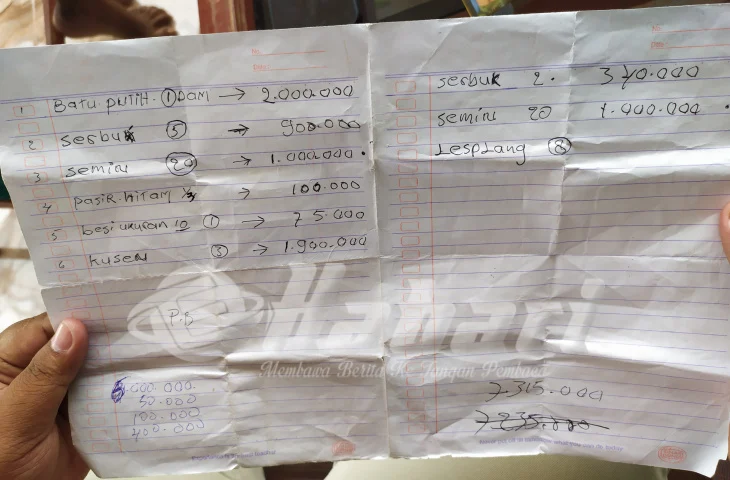 1 Batu putih ① DAM → 2.000.000
2 serbuk ⑤ → 900.000
3 semin ⑳ → 1.000.000.
4 pasir hitam → 100.000
5 besi ukuran 10 ① → 75.000
6 kusen ③ → 1.900.000
P.B
000.000.
50.000
100.000
400.000
No.
Date.
serbuk 2. 370.000
semin 20 1.000.000.
Lesplang ⑧
7.315.000
7.235.000
Hahari
Membawa Berita